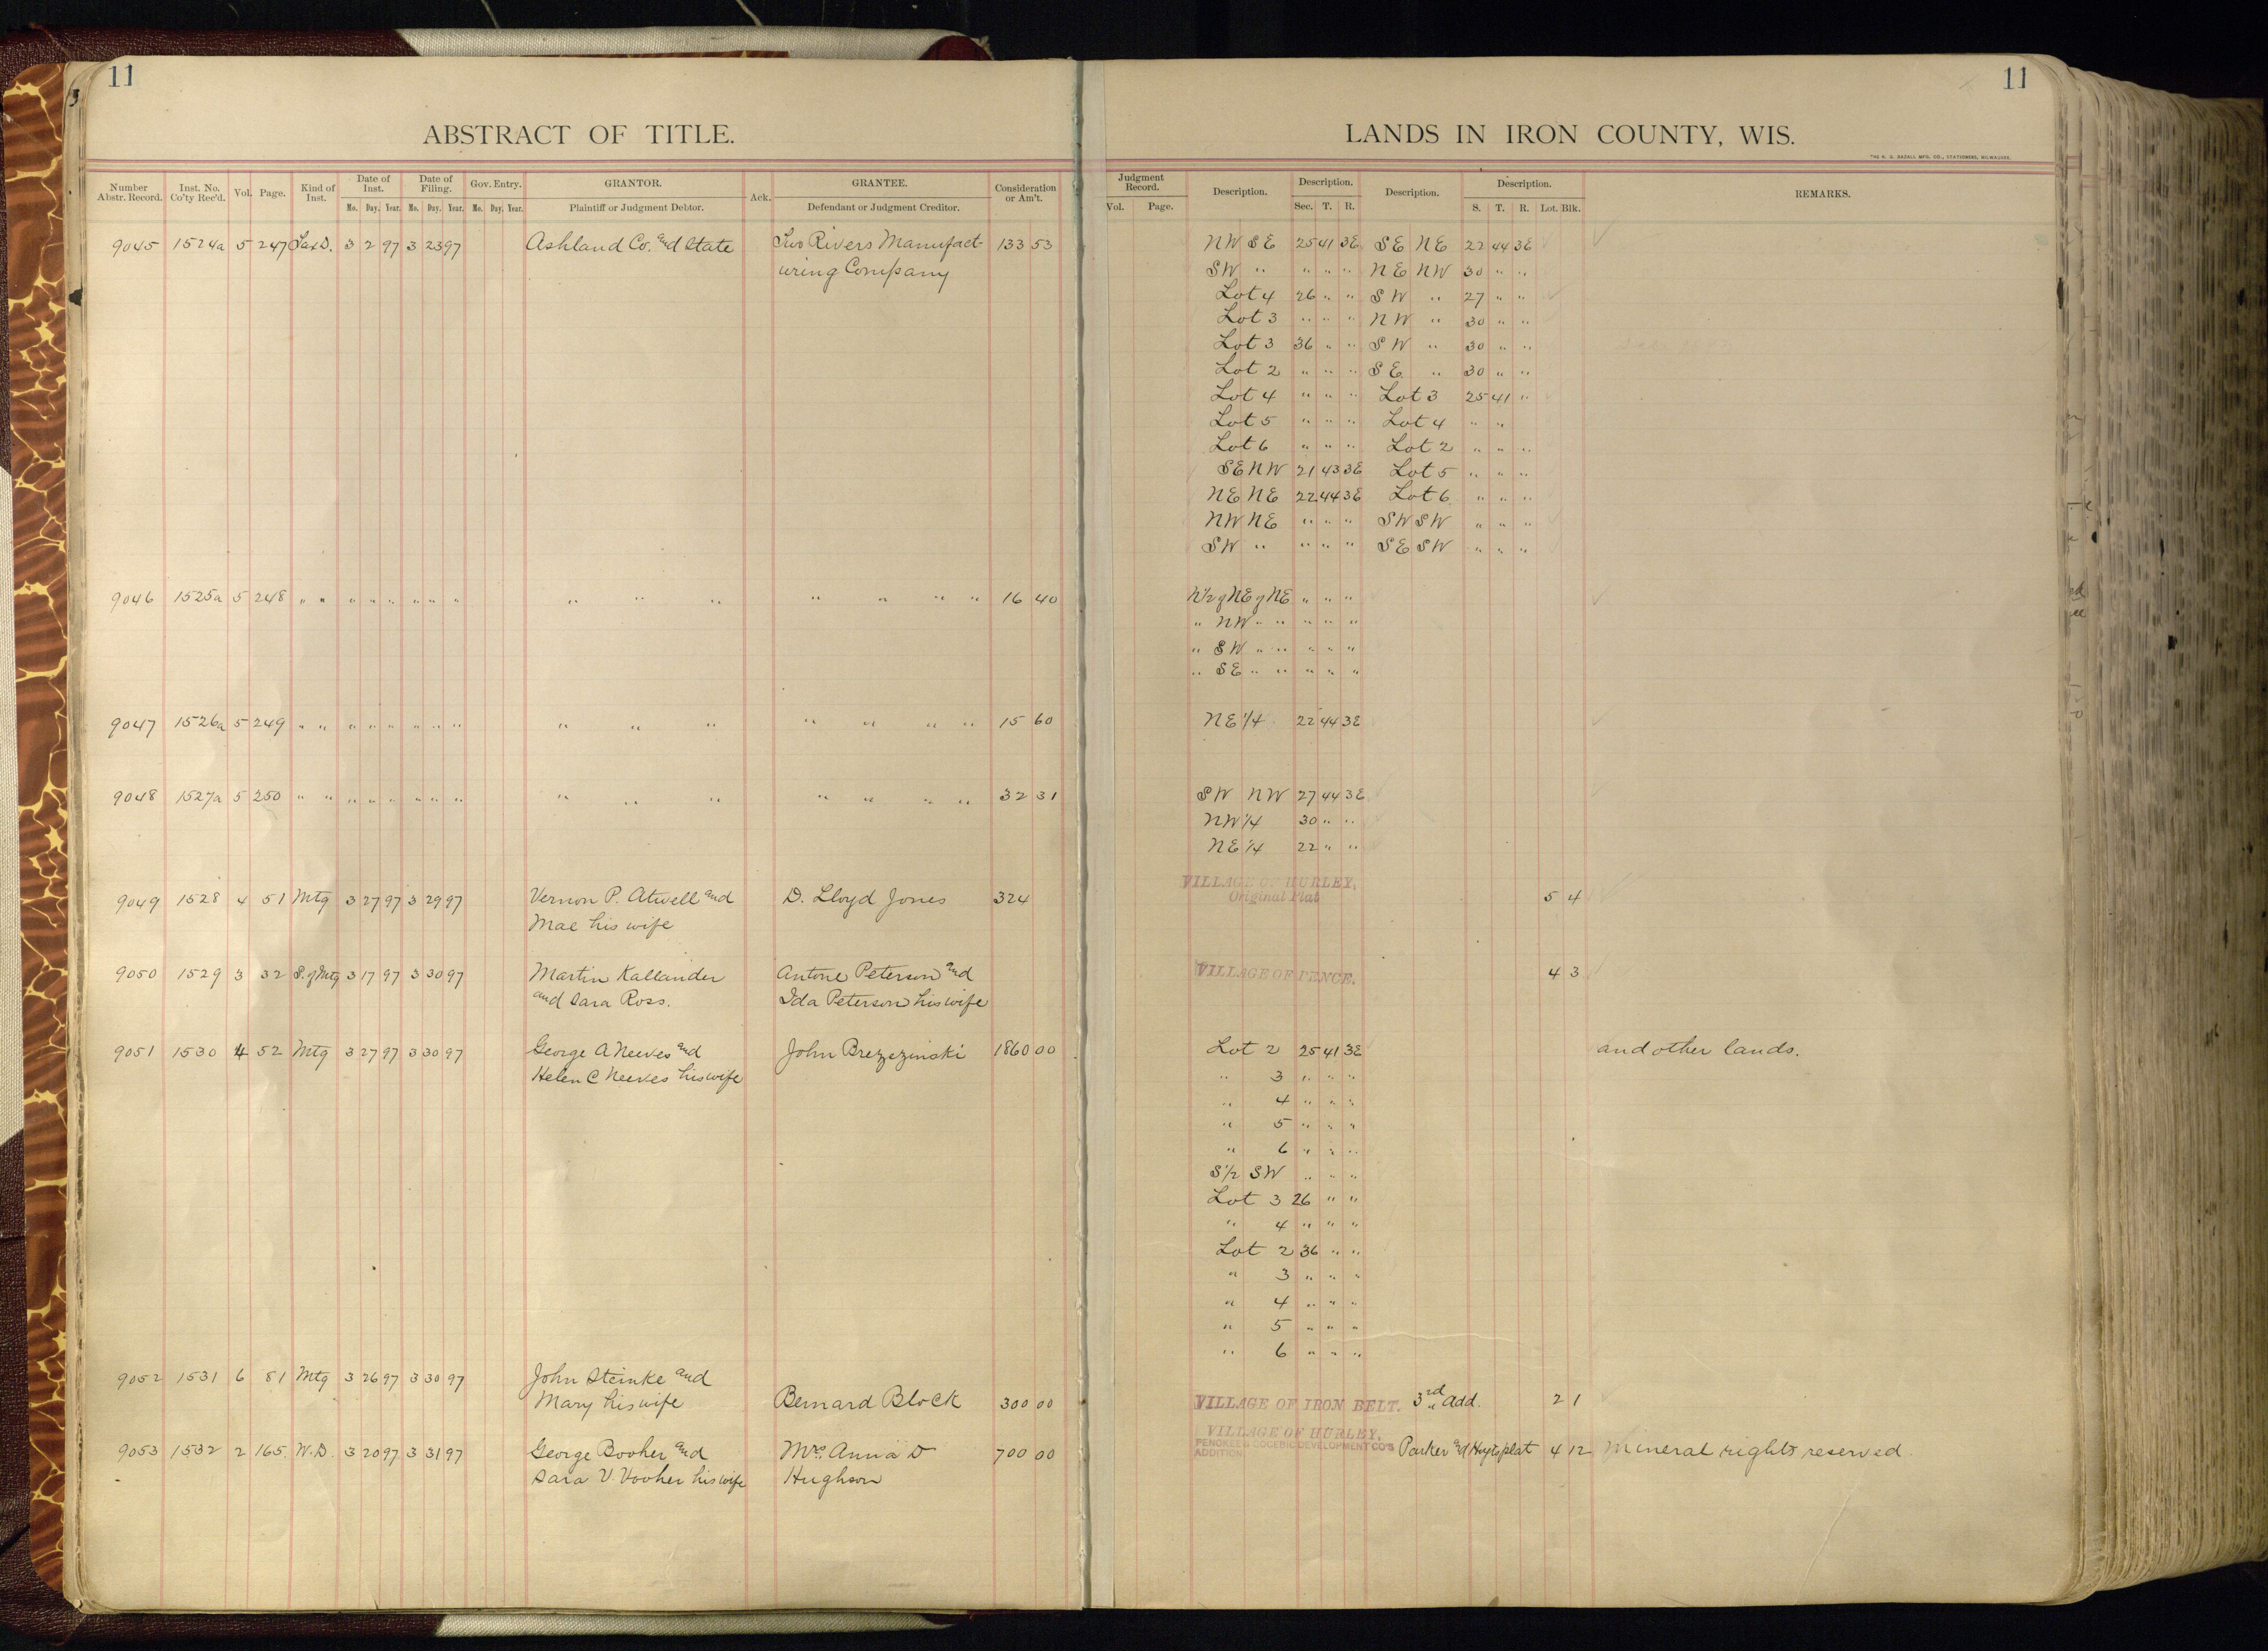 11
11
ABSTRACT OF TITLE.
LANDS IN IRON COUNTY, WIS.
THE H. G. RAZALL MFG. CO., STATIONERS, MILWAUKEE.
Number Abstr. Record. Inst. No. Co'ty Rec'd. Vol. Page. Kind of Inst. Date of Inst. Mo. Day. Year. Date of Filing. Mo. Day. Year. Gov. Entry. Mo. Day. Year. GRANTOR. Plaintiff or Judgment Debtor. Ack. GRANTEE. Defendant or Judgment Creditor. Consideration or Am't.
Judgment Record. Vol. Page. Description. Description. Sec. T. R. Description. Description. S. T. R. Lot. Blk. REMARKS.
9045 1524a 5 247 Tax D. 3 2 97 3 23 97 Ashland Co. and State Two Rivers Manufact- 133 53 NW SE 25 41 3E SE NE 22 44 3E
uring Company SW " " " " NE NW 30 " "
Lot 4 26 " " SW " 27 " "
Lot 3 " " " NW " 30 " "
Lot 3 36 " " SW " 30 " "
Lot 2 " " " SE " 30 " "
Lot 4 " " " Lot 3 25 41 "
Lot 5 " " " Lot 4 " "
Lot 6 " " " Lot 2 " " "
SE NW 21 43 3E Lot 5 " " "
NE NE 22 44 3E Lot 6 " " "
NW NE " " " SW SW " " "
SW " " " " SE SW " " "
9046 1525a 5 248 " " " " " " " " " " " " " " " 16 40 N 1/2 of NE of NE " " "
" NW " " " " "
" SW " " " " "
" SE " " " " "
9047 1526a 5 249 " " " " " " " " " " " " " " " 15 60 NE 1/4 22 44 3E
9048 1527a 5 250 " " " " " " " " " " " " " " " 32 31 SW NW 27 44 3E
NW 1/4 30 " "
NE 1/4 22 " "
VILLAGE OF HURLEY,
9049 1528 4 51 Mtg 3 27 97 3 29 97 Vernon P. Atwell and D. Lloyd Jones 324 Original Plat 5 4
Mae his wife
9050 1529 3 32 S. of Mtg 3 17 97 3 30 97 Martin Kallander Antone Peterson and VILLAGE OF PENCE. 4 3
and Sara Ross. Ida Peterson his wife
9051 1530 4 52 Mtg 3 27 97 3 30 97 George A Neeves and John Brezezinski 1860 00 Lot 2 25 41 3E and other lands.
Helen C Neeves his wife " 3 " " "
" 4 " " "
" 5 " " "
" 6 " " "
S 1/2 SW " " "
Lot 3 26 " "
" 4 " " "
Lot 2 36 " "
" 3 " " "
" 4 " " "
" 5 " " "
" 6 " " "
9052 1531 6 81 Mtg 3 26 97 3 30 97 John Steinke and
Mary his wife Bernard Block 300 00 VILLAGE OF IRON BELT. 3rd Add. 2 1
VILLAGE OF HURLEY,
9053 1532 2 165 W. D. 3 20 97 3 31 97 George Booher and Mrs. Anna D 700 00 PENOKEE & GOGEBIC DEVELOPMENT CO'S Parker and Hoyts plat 4 12 Mineral rights reserved
ADDITION.
Sara V. Vooher his wife Hughson